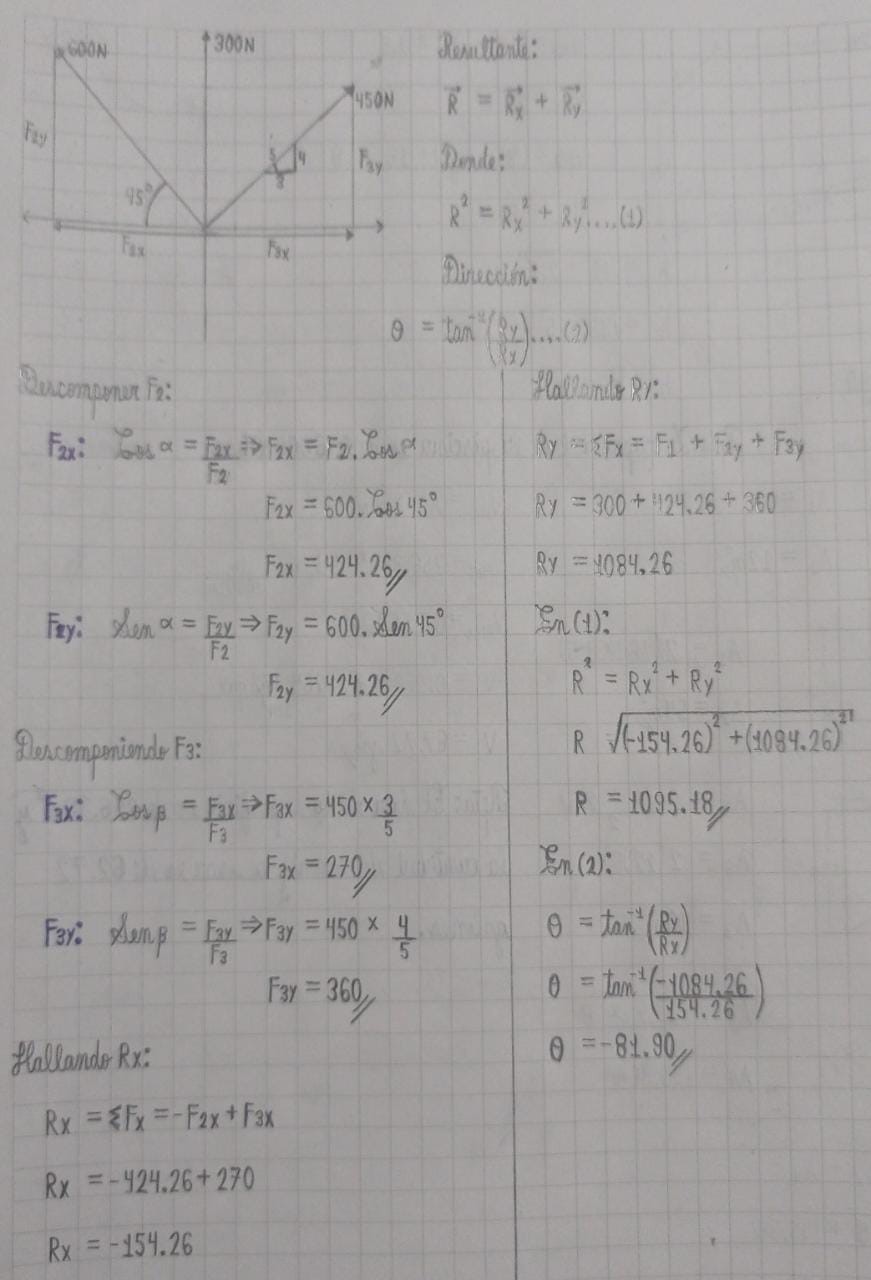 600N
300N
450N
F2y
45°
5
4
3
F3y
F2x
F3x
Resultante:
R⃗ = R⃗x + R⃗y
Donde:
R² = Rx² + Ry²....(1)
Dirección:
θ = tan⁻¹(Ry/Rx)....(2)
Descomponer F2:
F2x: Cos α = F2x/F2 ⇒ F2x = F2. Cos α
F2x = 600. Cos 45°
F2x = 424.26//
F2y: Sen α = F2y/F2 ⇒ F2y = 600. Sen 45°
F2y = 424.26//
Descomponiendo F3:
F3x: Cos β = F3x/F3 ⇒ F3x = 450 × 3/5
F3x = 270//
F3y: Sen β = F3y/F3 ⇒ F3y = 450 × 4/5
F3y = 360//
Hallando Rx:
Rx = ΣFx = -F2x + F3x
Rx = -424.26 + 270
Rx = -154.26
Hallando Ry:
Ry = ΣFx = F1 + F2y + F3y
Ry = 300 + 424.26 + 360
Ry = 1084.26
En (1):
R² = Rx² + Ry²
R √((-154.26)² + (1084.26)²)
R = 1095.18//
En (2):
θ = tan⁻¹(Ry/Rx)
θ = tan⁻¹(-1084.26/154.26)
θ = -81.90//